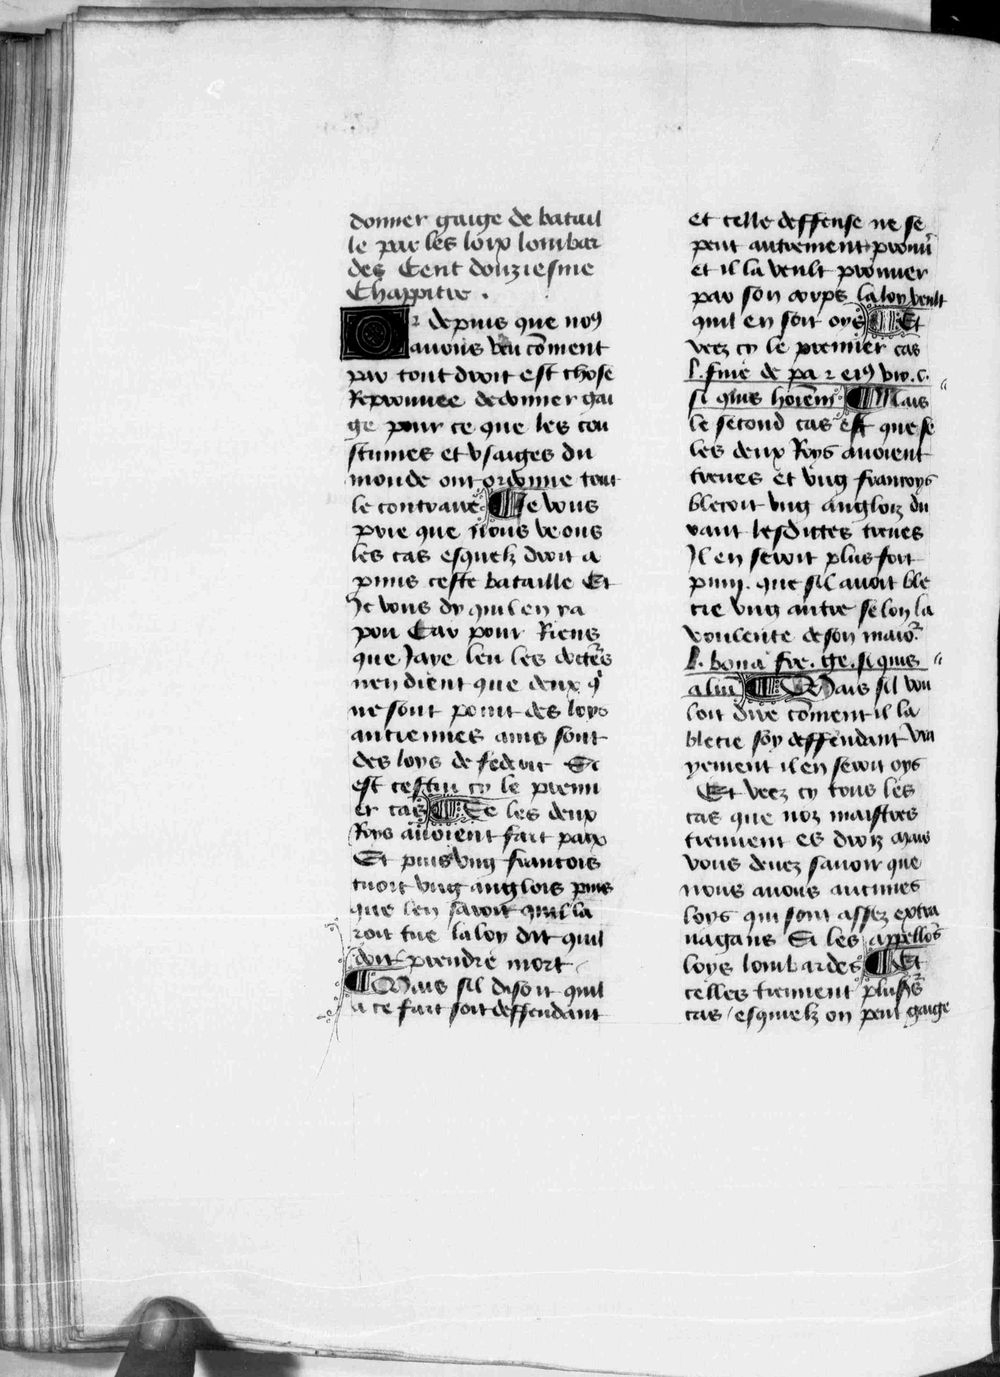 donner gaige de batail
le par les loix lombar
des Cent douziesme
Chappitre .
Or depuis que no9
auons veu com̄ent
par tout droit est chose
Reprouuee de donner gai
ge pour ce que les cou
stumes et vsaiges du
monde ont ordonne tout
le contraire Je vous
prie que nous veons
les cas esquelz droit a
puis ceste bataille Et
Je vous dy quil en ya
pou Car pour Riens
que Jaye leu les doctrs̄
nen dient que deux q̄
ne sont point des loys
anciennes ains sont
des loys de federic Si
est cestui cy le premi
er cas Se les deux
Roys auoient fait paix
Et puis vng francois
tuoit vng anglois puis
que len sauroit quil la
roit tue la loy dit quil
doit prendre mort
Mais sil disoit quil
a ce fait soit deffendant
et celle deffense ne se
peut autrement prouū
et il la veult prouuer
par son corps la loy veult
quil en soit oys Et
veez cy le premier cas
l. sine de pa 2 ei9 vio. c.
si quis hoiēm Mais
le second cas est que se
les deux Roys auoient
treues et vng francoys
blecoit vng anglois du
rant lesdittes treues
Il en seroit plus fort
puny . que sil auoit ble
cie vng autre selon la
voulente de son maior̄
l. bona fre. ge. si quis
aliū Mais sil vou
loit dire com̄ent il la
blecie soy deffendant vra
yement il en seroit oys
Et veez cy tous les
cas que noz maistres
tiennent es droiz mais
vous deuez sauoir que
nous auons aucunes
loys qui sont assez extra
uagans Si les appellōs
loys lombardes Et
celles tiennent plusrs̄
cas / esquielz on peut gaige